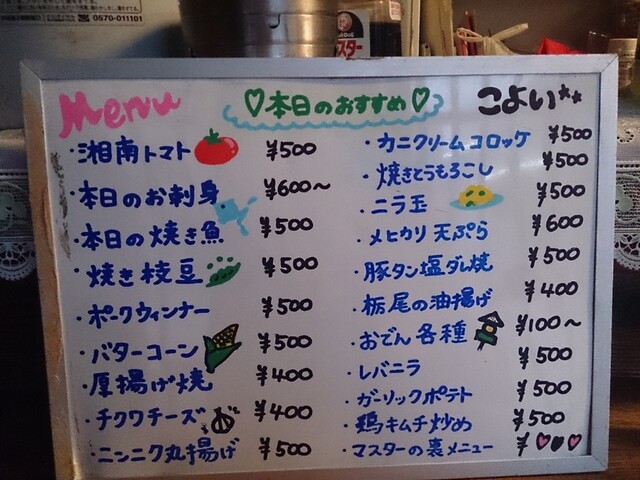 0570-011101
スター
Menu
♡本日のおすすめ♡
こよい**
・湘南トマト ¥500
・本日のお刺身 ¥600～
・本日の焼き魚 ¥500
・焼き枝豆 ¥500
・ポークウィンナー ¥500
・バターコーン ¥500
・厚揚げ焼 ¥400
・チクワチーズ ¥400
・ニンニク丸揚げ ¥500
・カニクリームコロッケ ¥500
・焼きとうもろこし ¥500
・ニラ玉 ¥500
・メヒカリ天ぷら ¥600
・豚タン塩ダレ焼 ¥500
・栃尾の油揚げ ¥400
・おでん各種 ¥100～
・レバニラ ¥500
・ガーリックポテト ¥500
・鶏キムチ炒め ¥500
・マスターの裏メニュー ¥♡♡♡